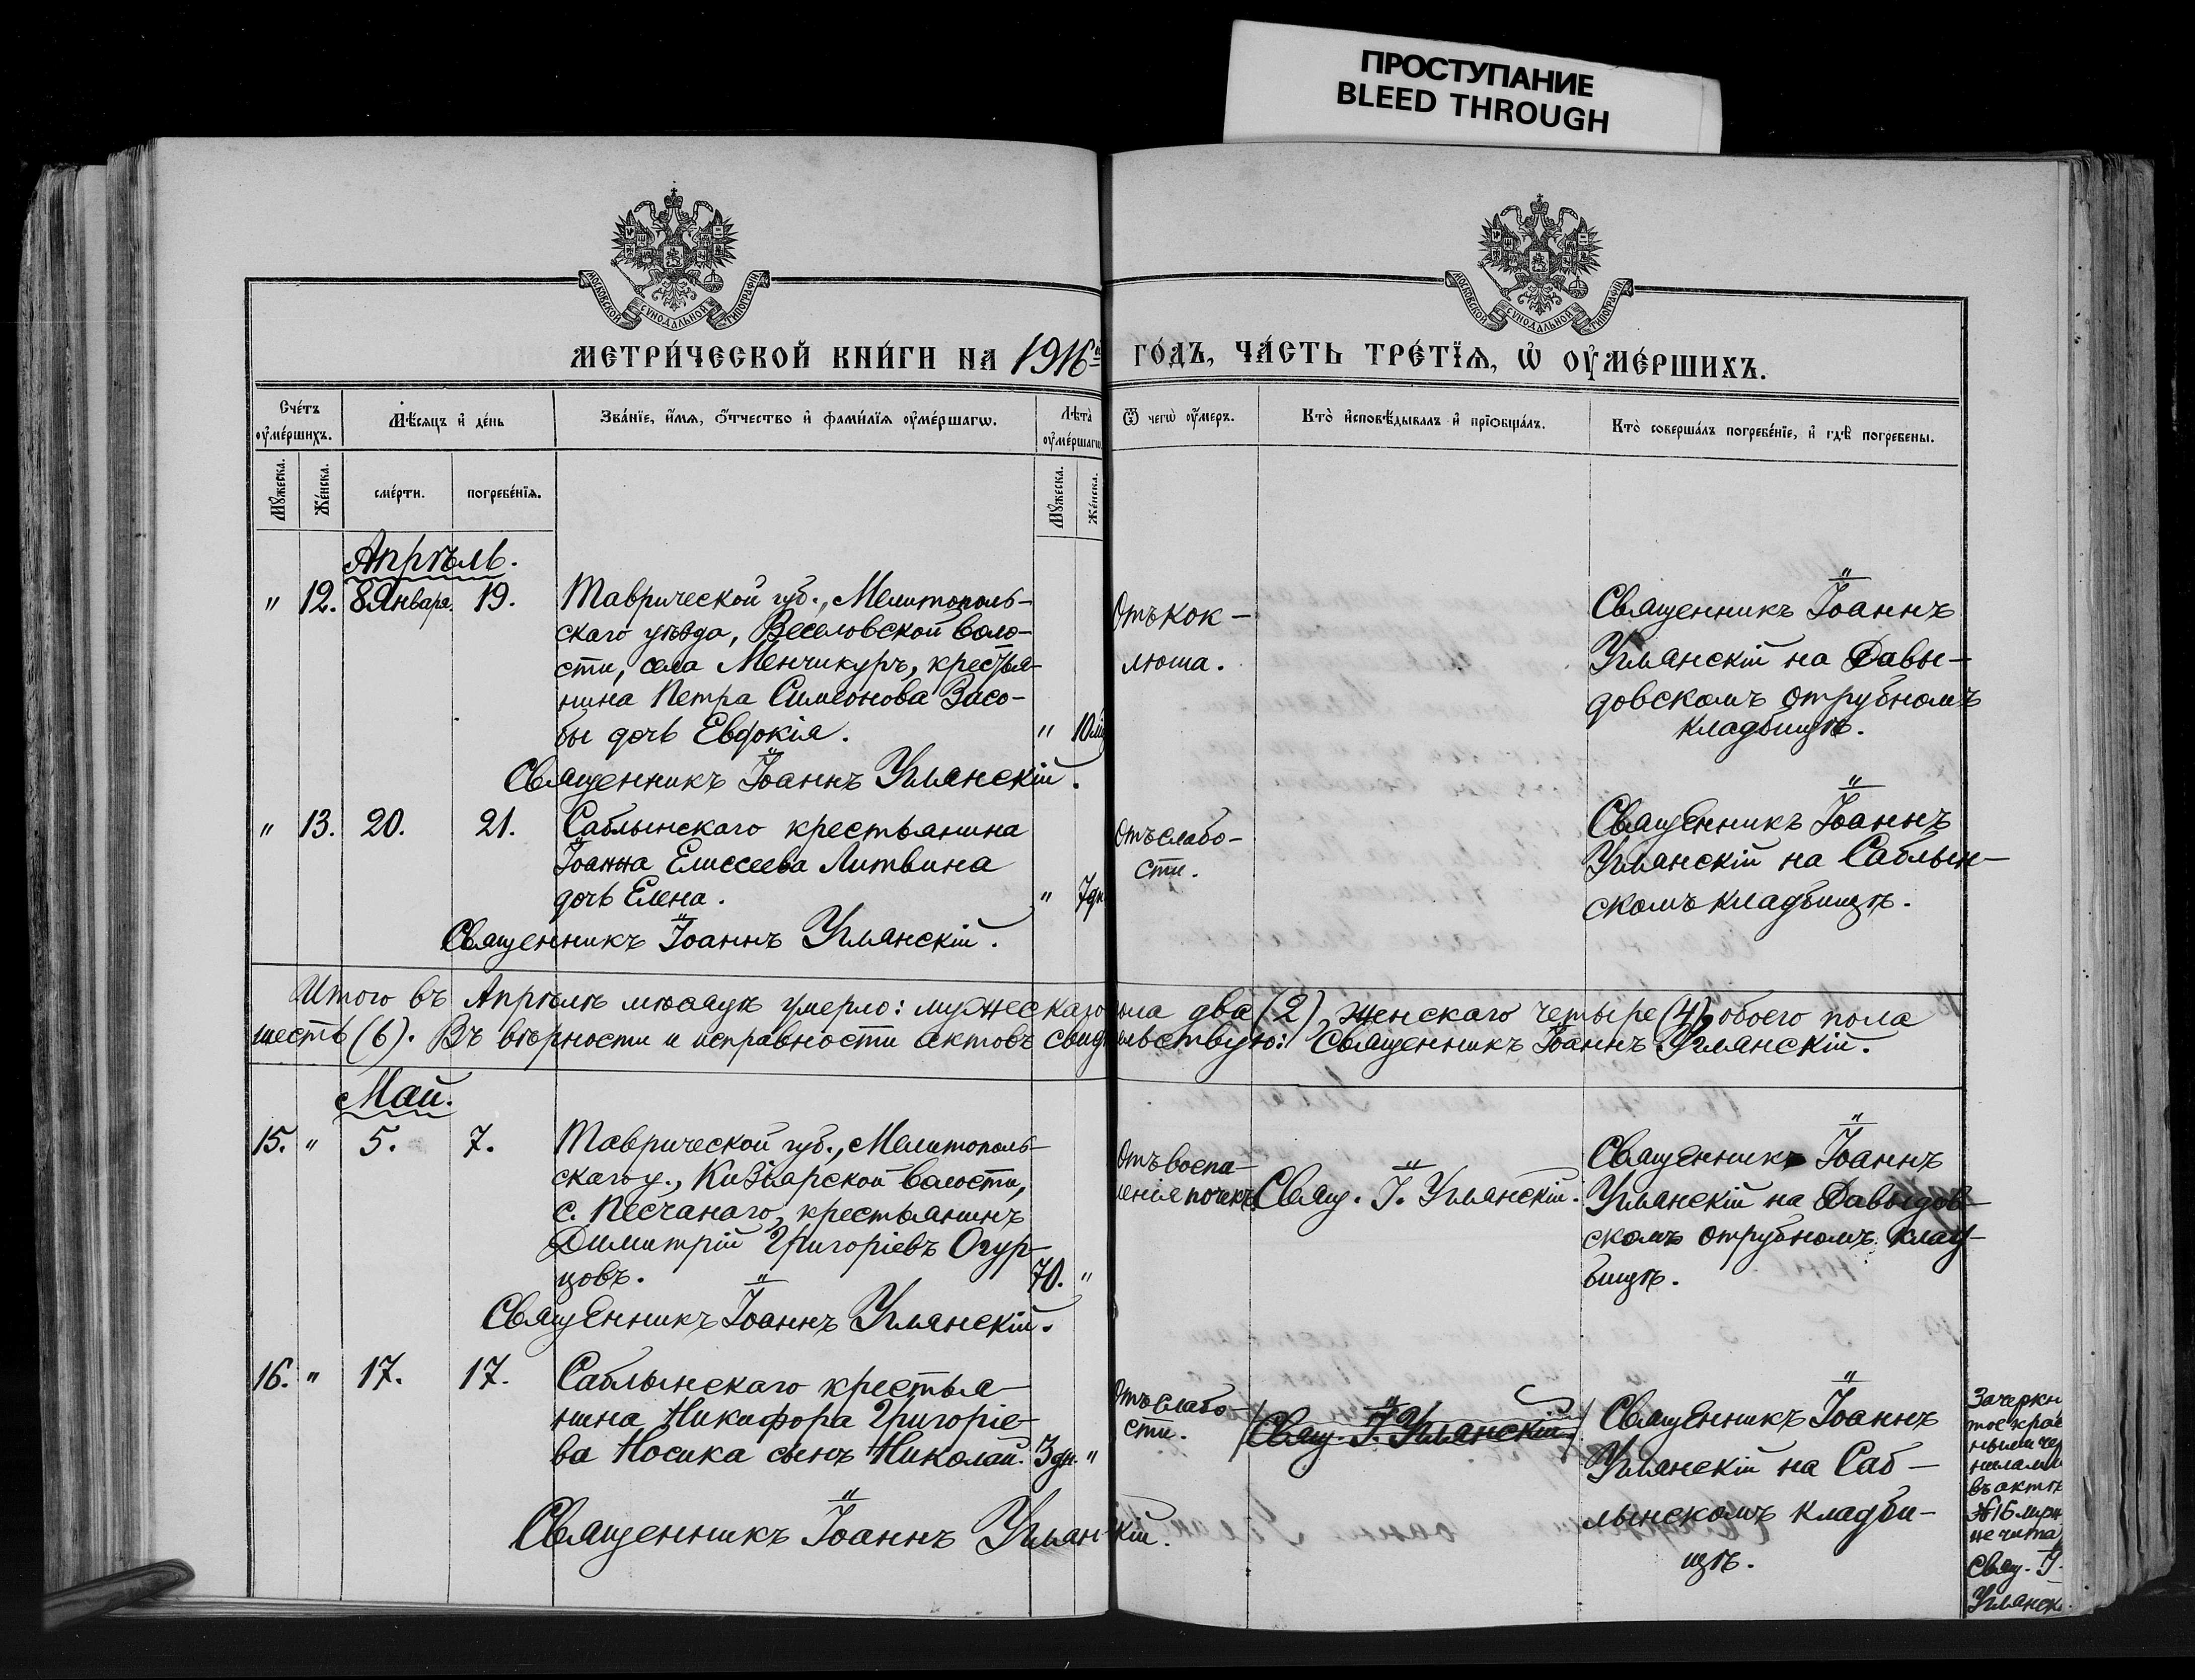 ПРОСТУПАНИЕ
BLEED THROUGH
МОСКОВСКОЙ СѴНОДАЛЬНОЙ ТИПОГРАФІИ
МОСКОВСКОЙ СѴНОДАЛЬНОЙ ТИПОГРАФІИ
МЕТРИ́ЧЕСКОЙ КНИ́ГИ НА 1916й ГО́ДЪ, ЧА́СТЬ ТРЕ́ТЇѦ, Ѽ ОУ҆МЕ́РШИХЪ.
Сче́тъ оу҆ме́ршихъ.
Мѣ́сяцъ и҆ де́нь
Зва́нїе, и҆́мѧ, ѻ҆́тчество и҆ фами́лїѧ оу҆ме́ршагѡ.
Лѣта̀ оу҆ме́ршагѡ
Ѿ чегѡ̀ оу҆́меръ.
Кто̀ и҆сповѣ́дывалъ и҆ прїѡбща́лъ.
Кто̀ соверша́лъ погребе́нїе, и҆ гдѣ̀ погребены.
Мꙋ́жеска.
Же́нска.
сме́рти.
погребе́нїѧ.
Мꙋ́жеска.
Же́нска.
Апрѣль.
" 12. 8 Января. 19.
Таврической губ., Мелитополь-
скаго уѣзда, Веселовской воло-
сти, села Менчикуръ, крестья-
нина Петра Симеонова Засо-
бы дочь Евдокія. " 10
Священникъ Іоаннъ Углянскій.
Отъ кок-
люша.
Священникъ Іоаннъ
Углянскій на Давы-
довскомъ отрубномъ
кладбищѣ.
" 13. 20. 21.
Саблынскаго крестьянина
Іоанна Елисеева Литвина
дочь Елена. " 7 дн
Священникъ Іоаннъ Углянскій.
Отъ слабо-
сти.
Священникъ Іоаннъ
Углянскій на Саблын-
скомъ кладбищѣ.
Итого въ Апрѣлѣ мѣсяцѣ умерло: мужескаго пола два (2), женскаго четыре (4), обоего пола
шесть (6). Въ вѣрности и исправности актовъ свидѣтельствую: Священникъ Іоаннъ Углянскій.
Май.
15. " 5. 7.
Таврической губ., Мелитополь-
скаго у., Кизіярской волости,
с. Песчанаго, крестьянинъ
Димитрій Григоріевъ Огур-
цовъ. 70. "
Священникъ Іоаннъ Углянскій.
Отъ воспа-
ленія почекъ
Свящ. І. Углянскій.
Священникъ Іоаннъ
Углянскій на Давыдов-
скомъ отрубномъ клад-
бищѣ.
16. " 17. 17.
Саблынскаго крестья-
нина Никифора Григоріе-
ва Носика сынъ Николай. 3 дн. "
Священникъ Іоаннъ Углянскій.
Отъ слабо-
сти.
Свящ. І. Углянскій
Священникъ Іоаннъ
Углянскій на Саб-
лынскомъ кладби-
щѣ.
Зачеркн
тое крас
ными чер
нилами
въ актѣ
№ 16
не чита
Свящ. І.
Углянск